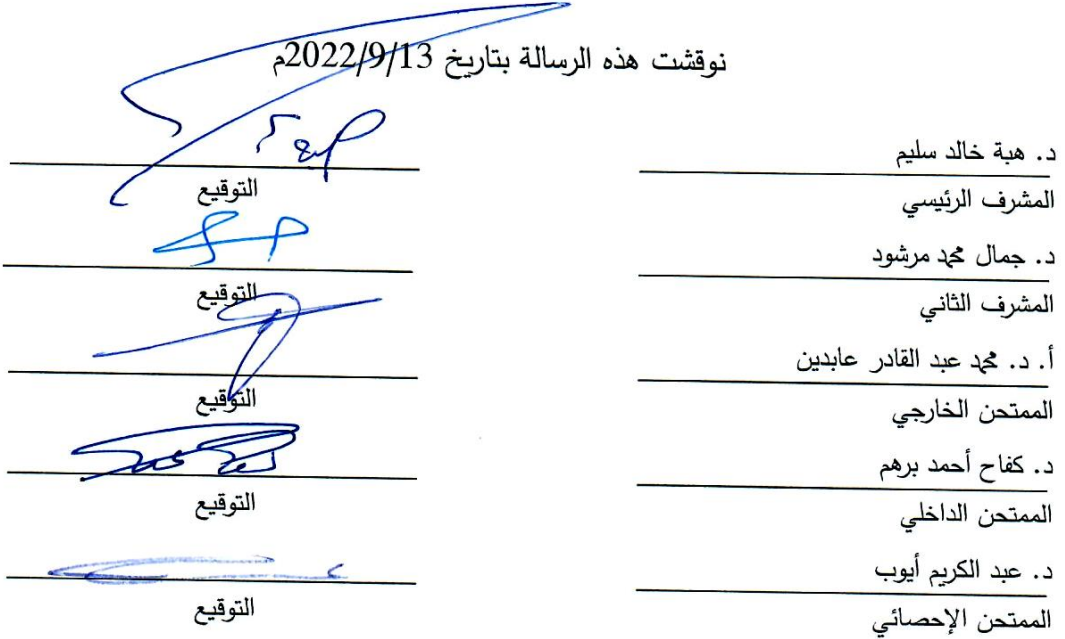 نوقشت هذه الرسالة بتاريخ 2022/9/13م
د. هبة خالد سليم
المشرف الرئيسي
التوقيع
د. جمال محمد مرشود
المشرف الثاني
التوقيع
أ. د. محمد عبد القادر عابدين
الممتحن الخارجي
التوقيع
د. كفاح أحمد برهم
الممتحن الداخلي
التوقيع
د. عبد الكريم أيوب
الممتحن الإحصائي
التوقيع